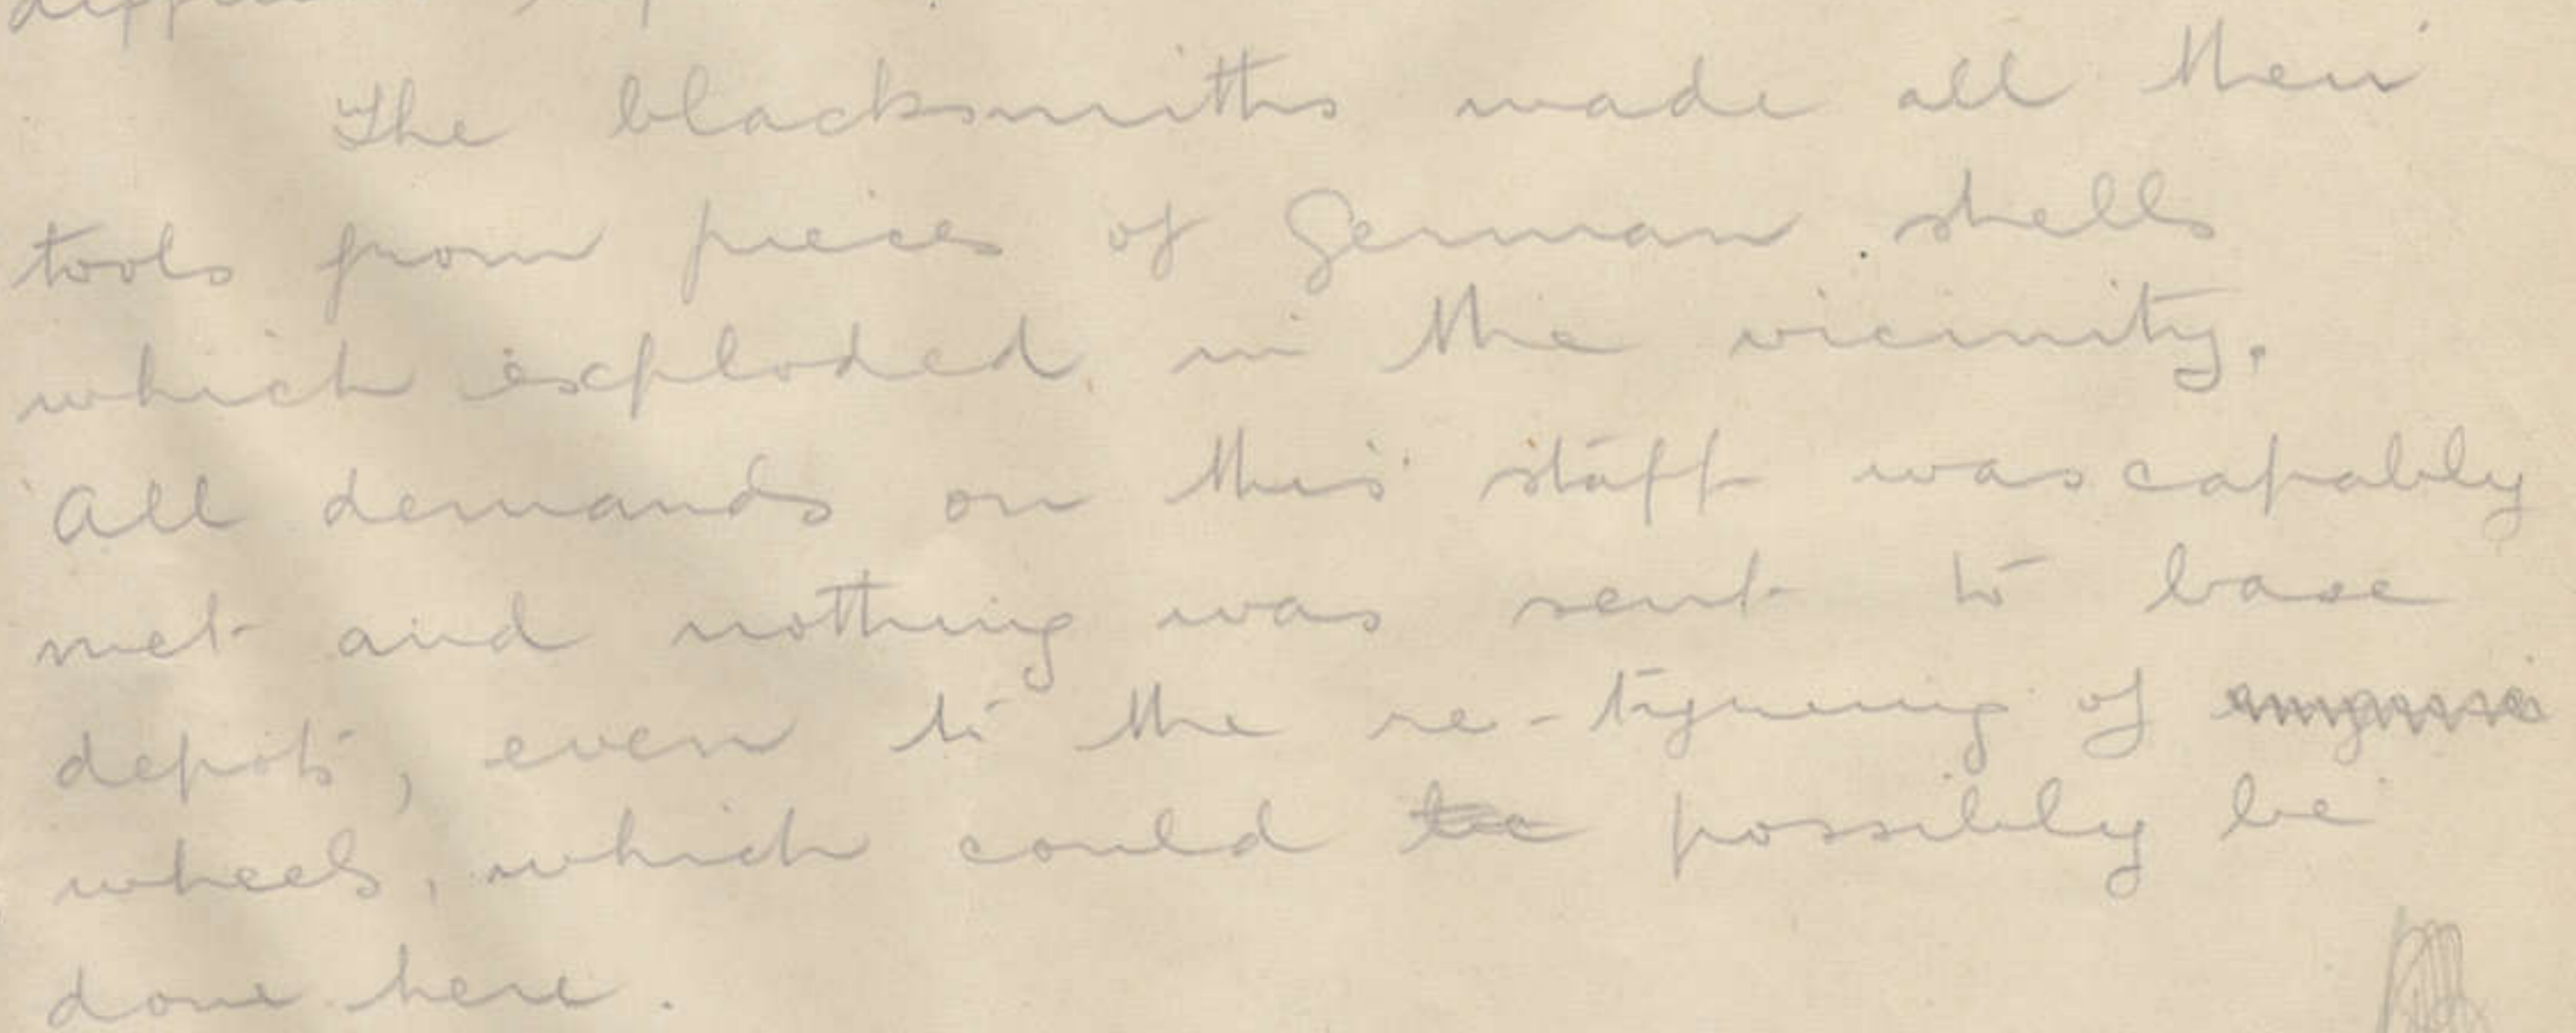 The blacksmiths made all their
tools from pieces of German shells
which exploded in the vicinity.
All demands on this staff was capably
met and nothing was sent to base
depots, even to the re-tyreing of
wheels, which could be possibly be
done here.